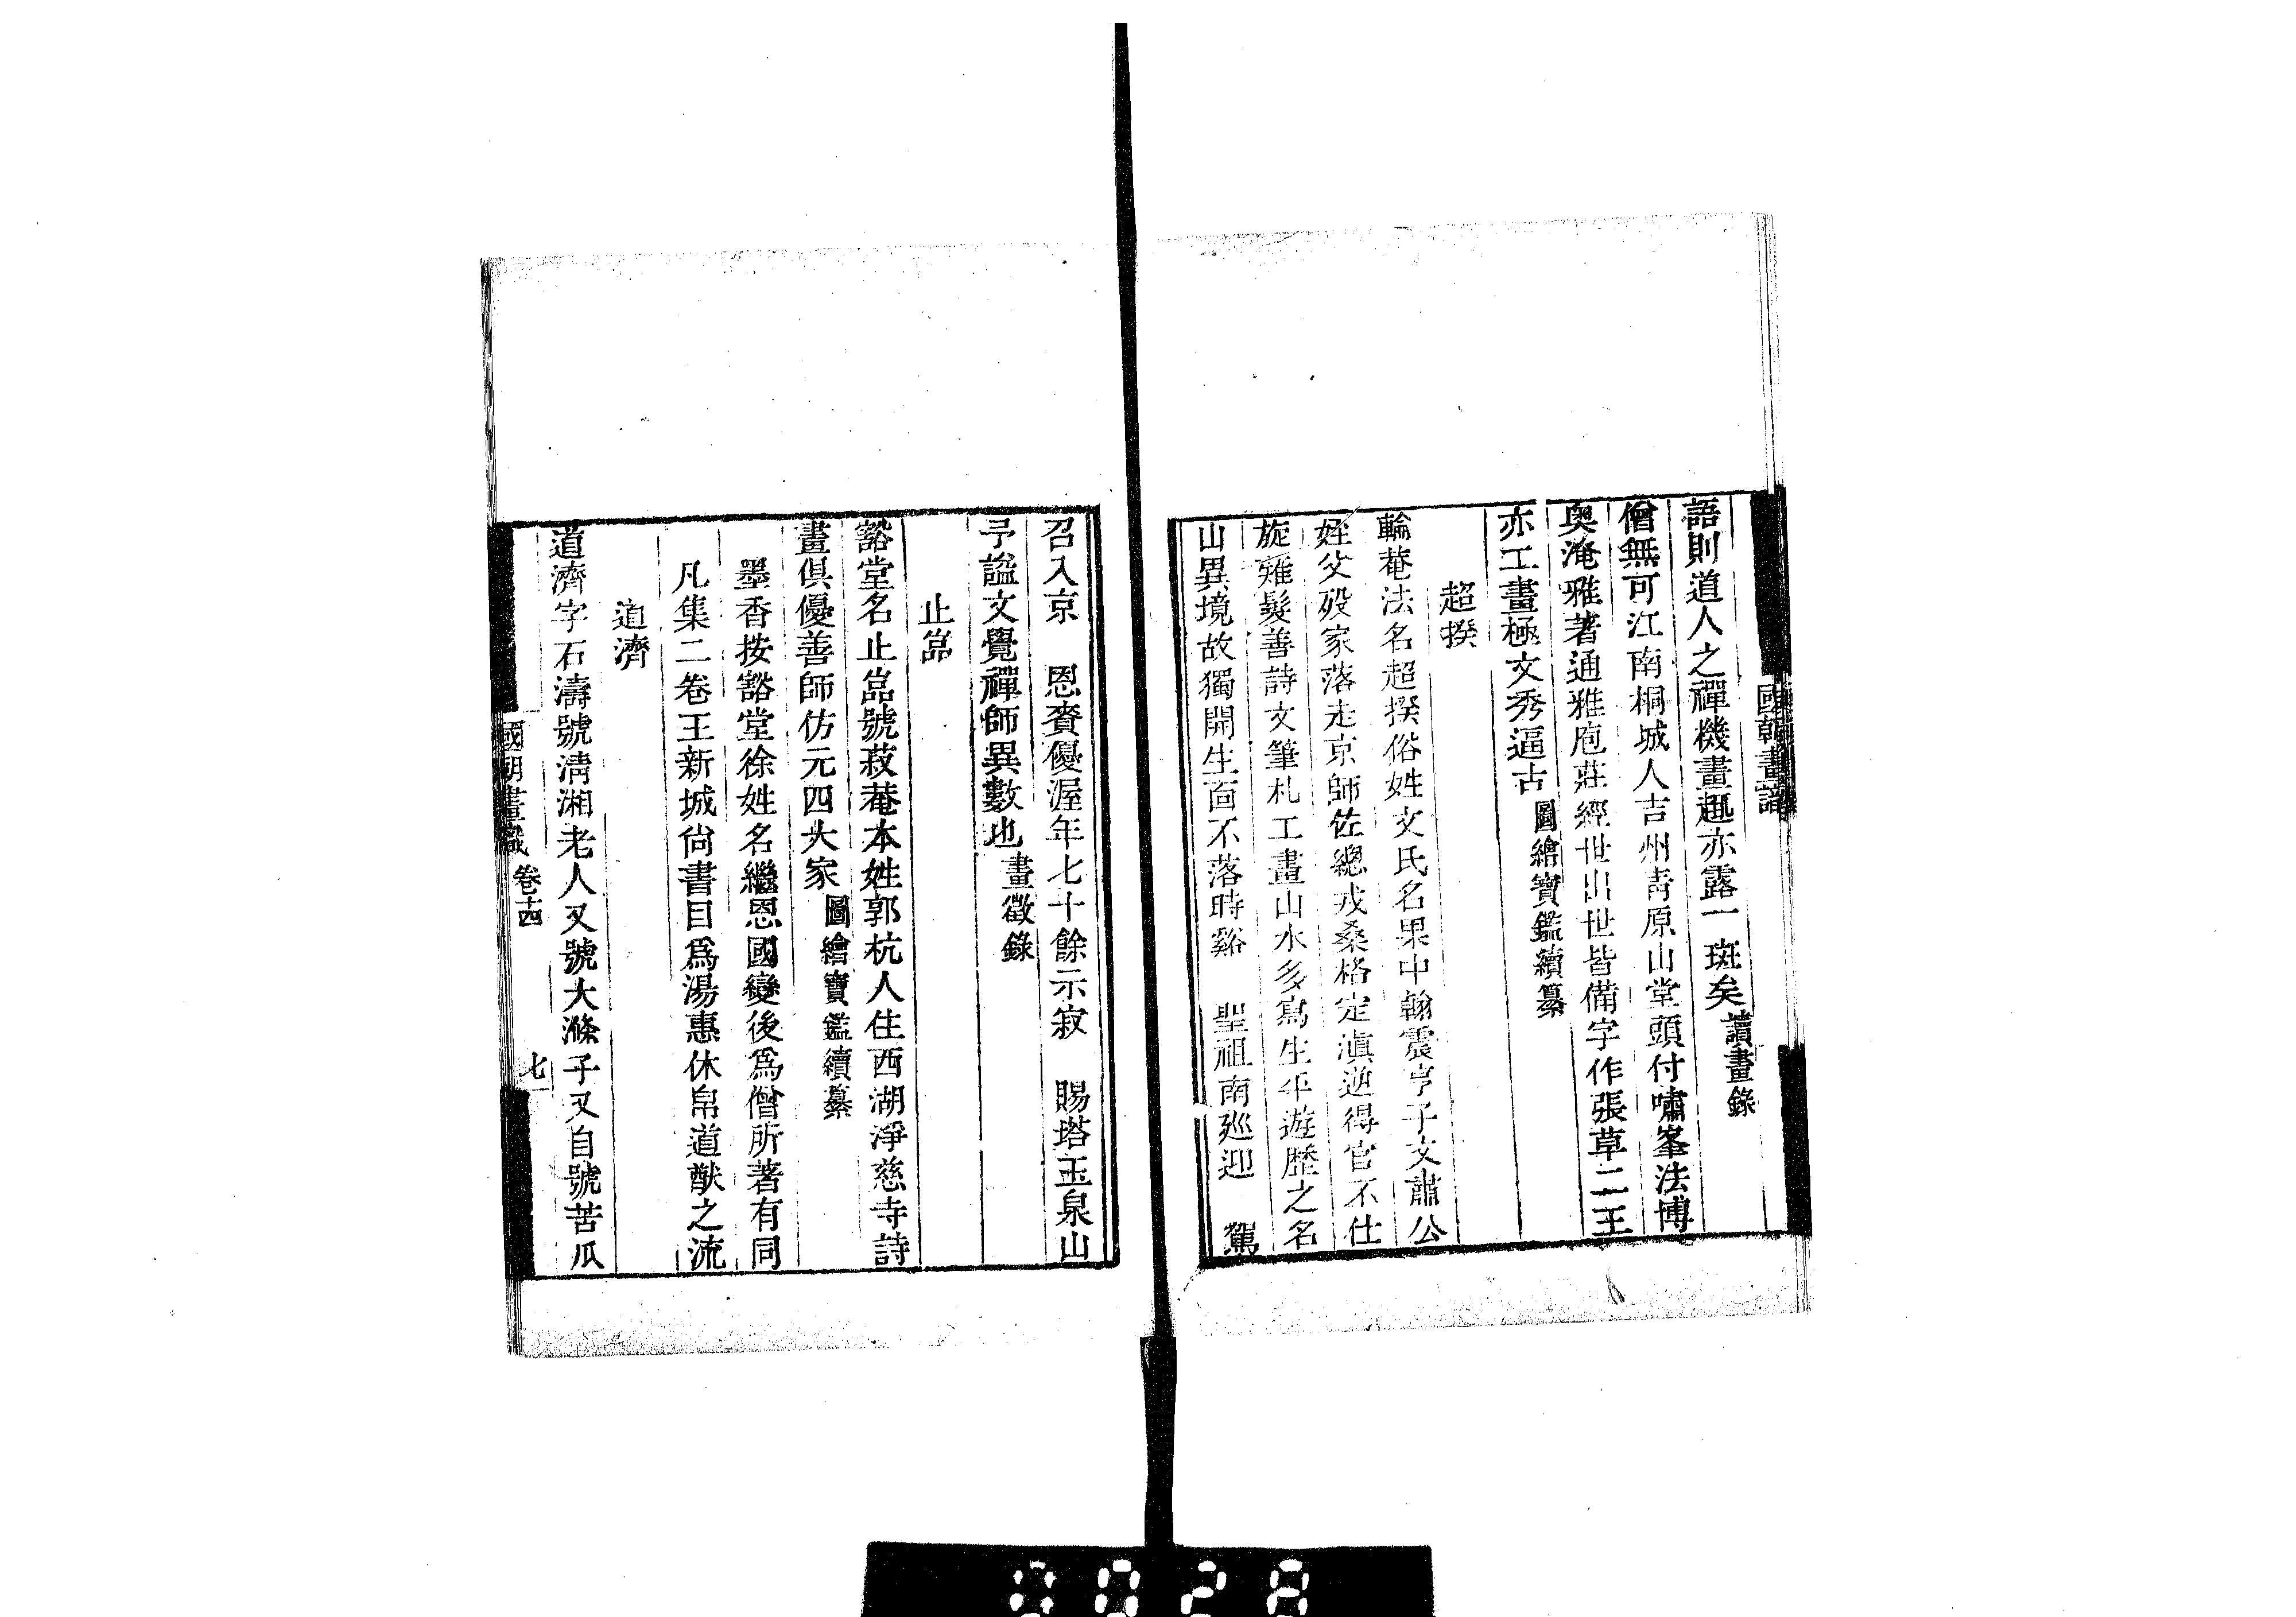 國朝畫識
語則道人之禪機畫趣亦露一斑矣讀畫錄
僧無可江南桐城人吉州青原山堂頭付嘯峯法博
奥淹雅著通雅庖莊經世出世皆備字作張草二王
亦工畫極文秀逼古圖繪寶鑑續纂
超揆
輪菴法名超揆俗姓文氏名果中翰震亨子文肅公
姪父歿家落走京師佐總戎桑格定滇逆得官不仕
旋薙髮善詩文筆札工畫山水多寫生平遊歷之名
山異境故獨開生面不落時谿 聖祖南廵迎 駕
召入京 恩賚優渥年七十餘示寂 賜塔玉泉山
予謚文覺禪師異數也畫徵錄
止嵓
豁堂名止嵓號菽菴本姓郭杭人住西湖淨慈寺詩
畫俱優善師仿元四大家圖繪寶鑑續纂
墨香按豁堂徐姓名繼恩國變後爲僧所著有同
凡集二卷王新城尙書目爲湯惠休帛道猷之流
道濟
道濟字石濤號淸湘老人又號大滌子又自號苦瓜
國朝畫識 卷十四 七
0028